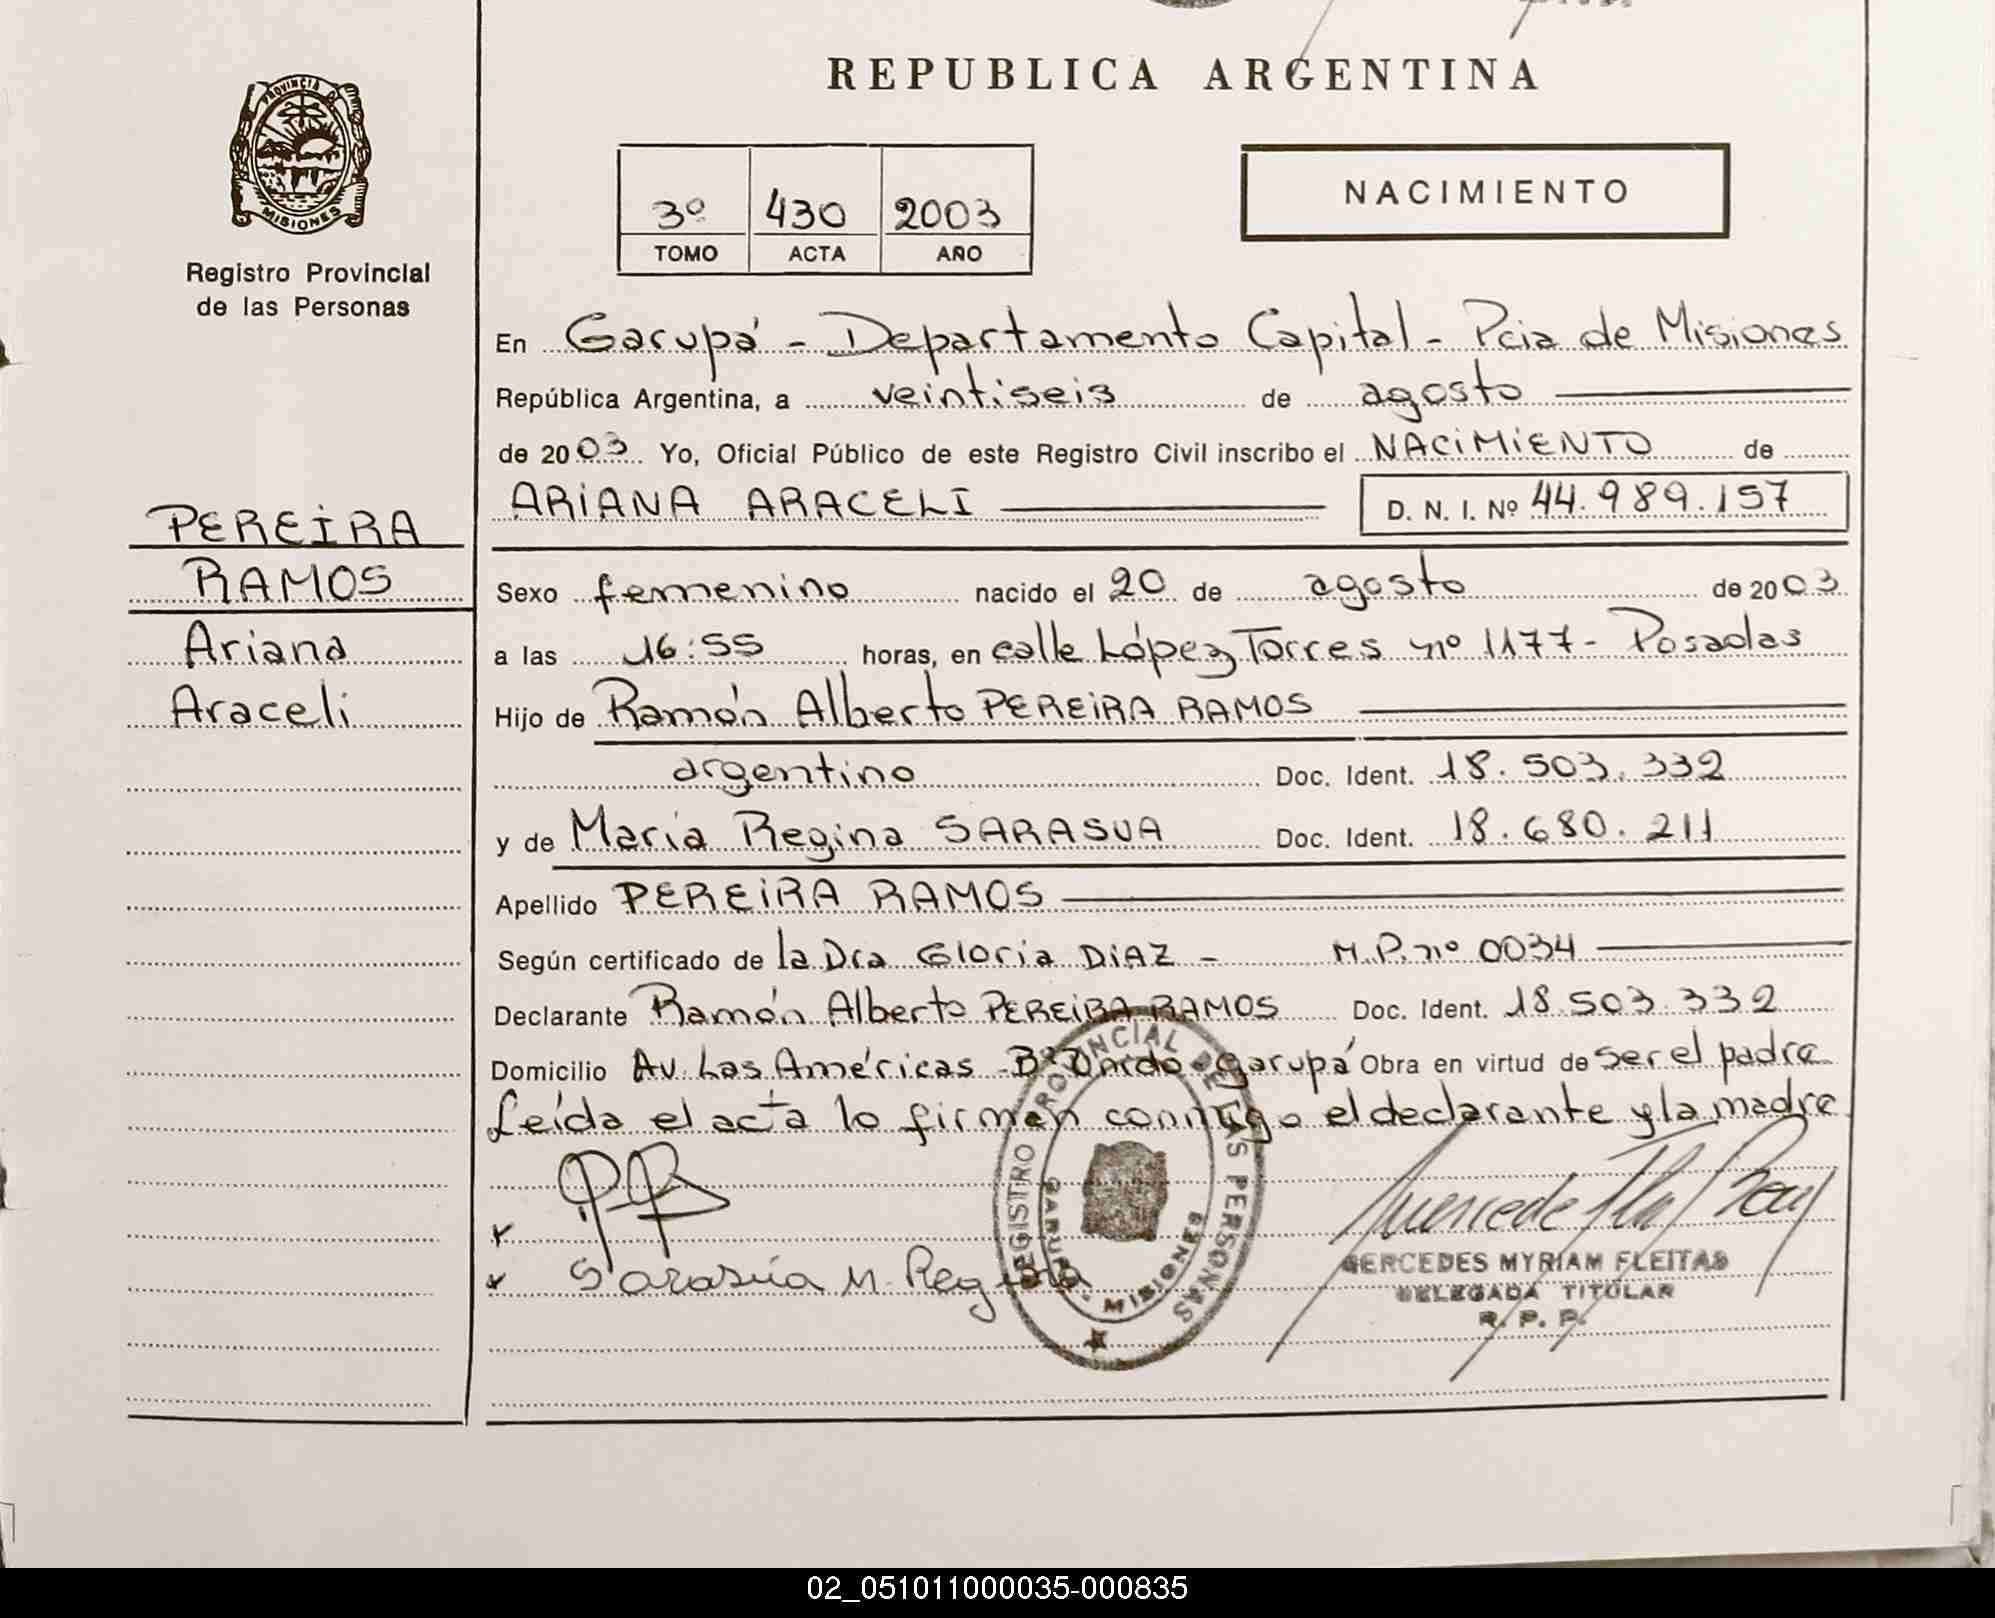 REPUBLICA ARGENTINA
PROVINCIA DE
MISIONES
Registro Provincial
de las Personas
3º 430 2003
TOMO ACTA AÑO
NACIMIENTO
En Garupá - Departamento Capital - Pcia de Misiones
República Argentina, a veintiseis de agosto
de 2003 Yo, Oficial Público de este Registro Civil inscribo el NACIMIENTO de
ARIANA ARACELI D. N. I. Nº 44.989.157
PEREIRA
RAMOS
Ariana
Araceli
Sexo femenino nacido el 20 de agosto de 2003
a las 16:55 horas, en calle López Torres nº 1177 - Posadas
Hijo de Ramón Alberto PEREIRA RAMOS
argentino Doc. Ident. 18.503.332
y de María Regina SARASUA Doc. Ident. 18.680.211
Apellido PEREIRA RAMOS
Según certificado de la Dra Gloria DIAZ - M.P. nº 0034
Declarante Ramón Alberto PEREIRA RAMOS Doc. Ident. 18.503.332
Domicilio Av. Las Américas - Bº Dardo - Garupá Obra en virtud de ser el padre
Leída el acta lo firman conmigo el declarante y la madre
Sarasúa M. Regina
REGISTRO PROVINCIAL DE LAS PERSONAS
GARUPA - MISIONES
MERCEDES MYRIAM FLEITAS
DELEGADA TITULAR
R. P. P.
02_051011000035-000835